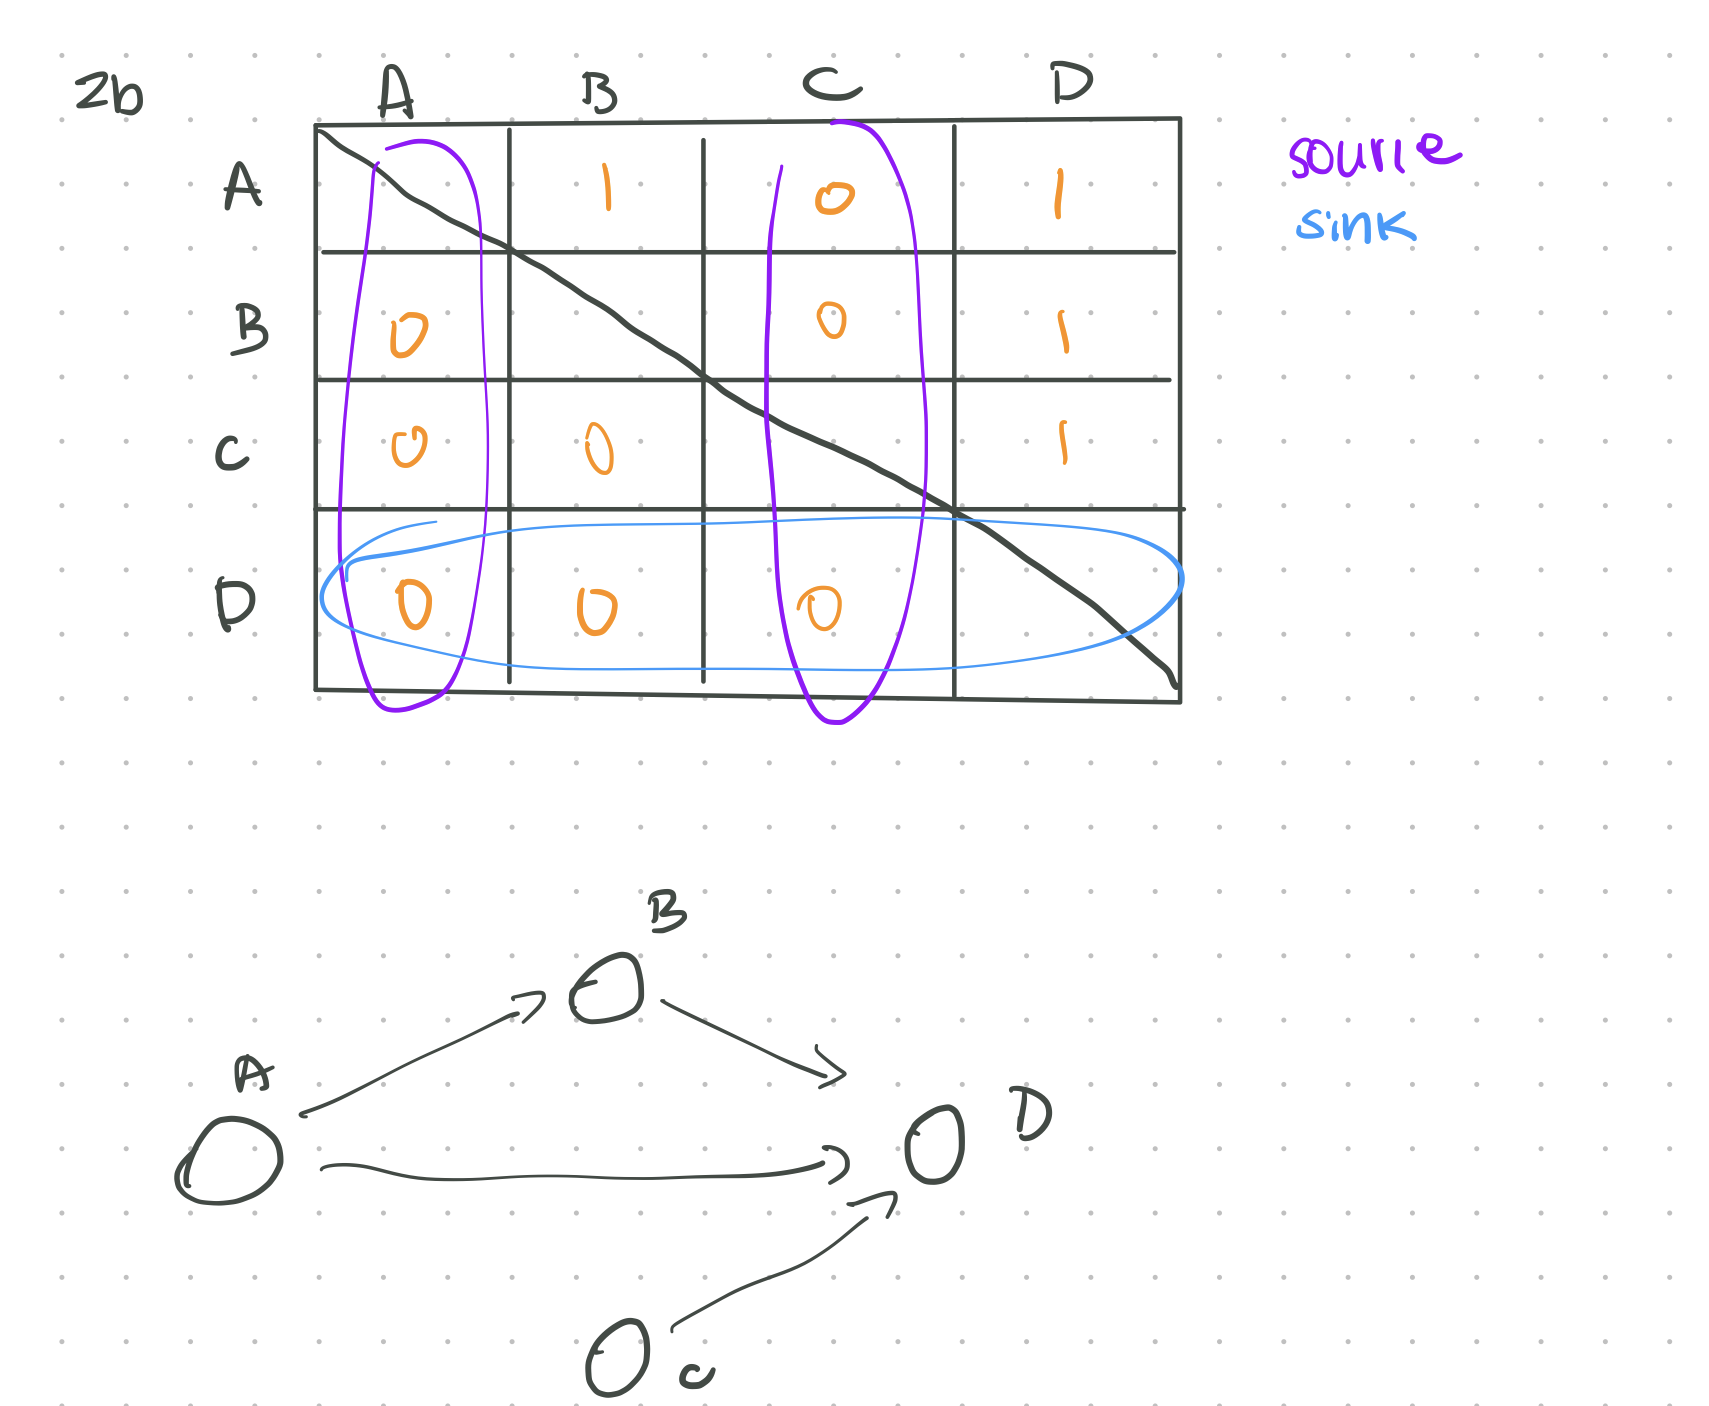 2b
A B C D
A 1 0 1
B 0 0 1
C 0 0 1
D 0 0 0
source
sink
B
A
D
C